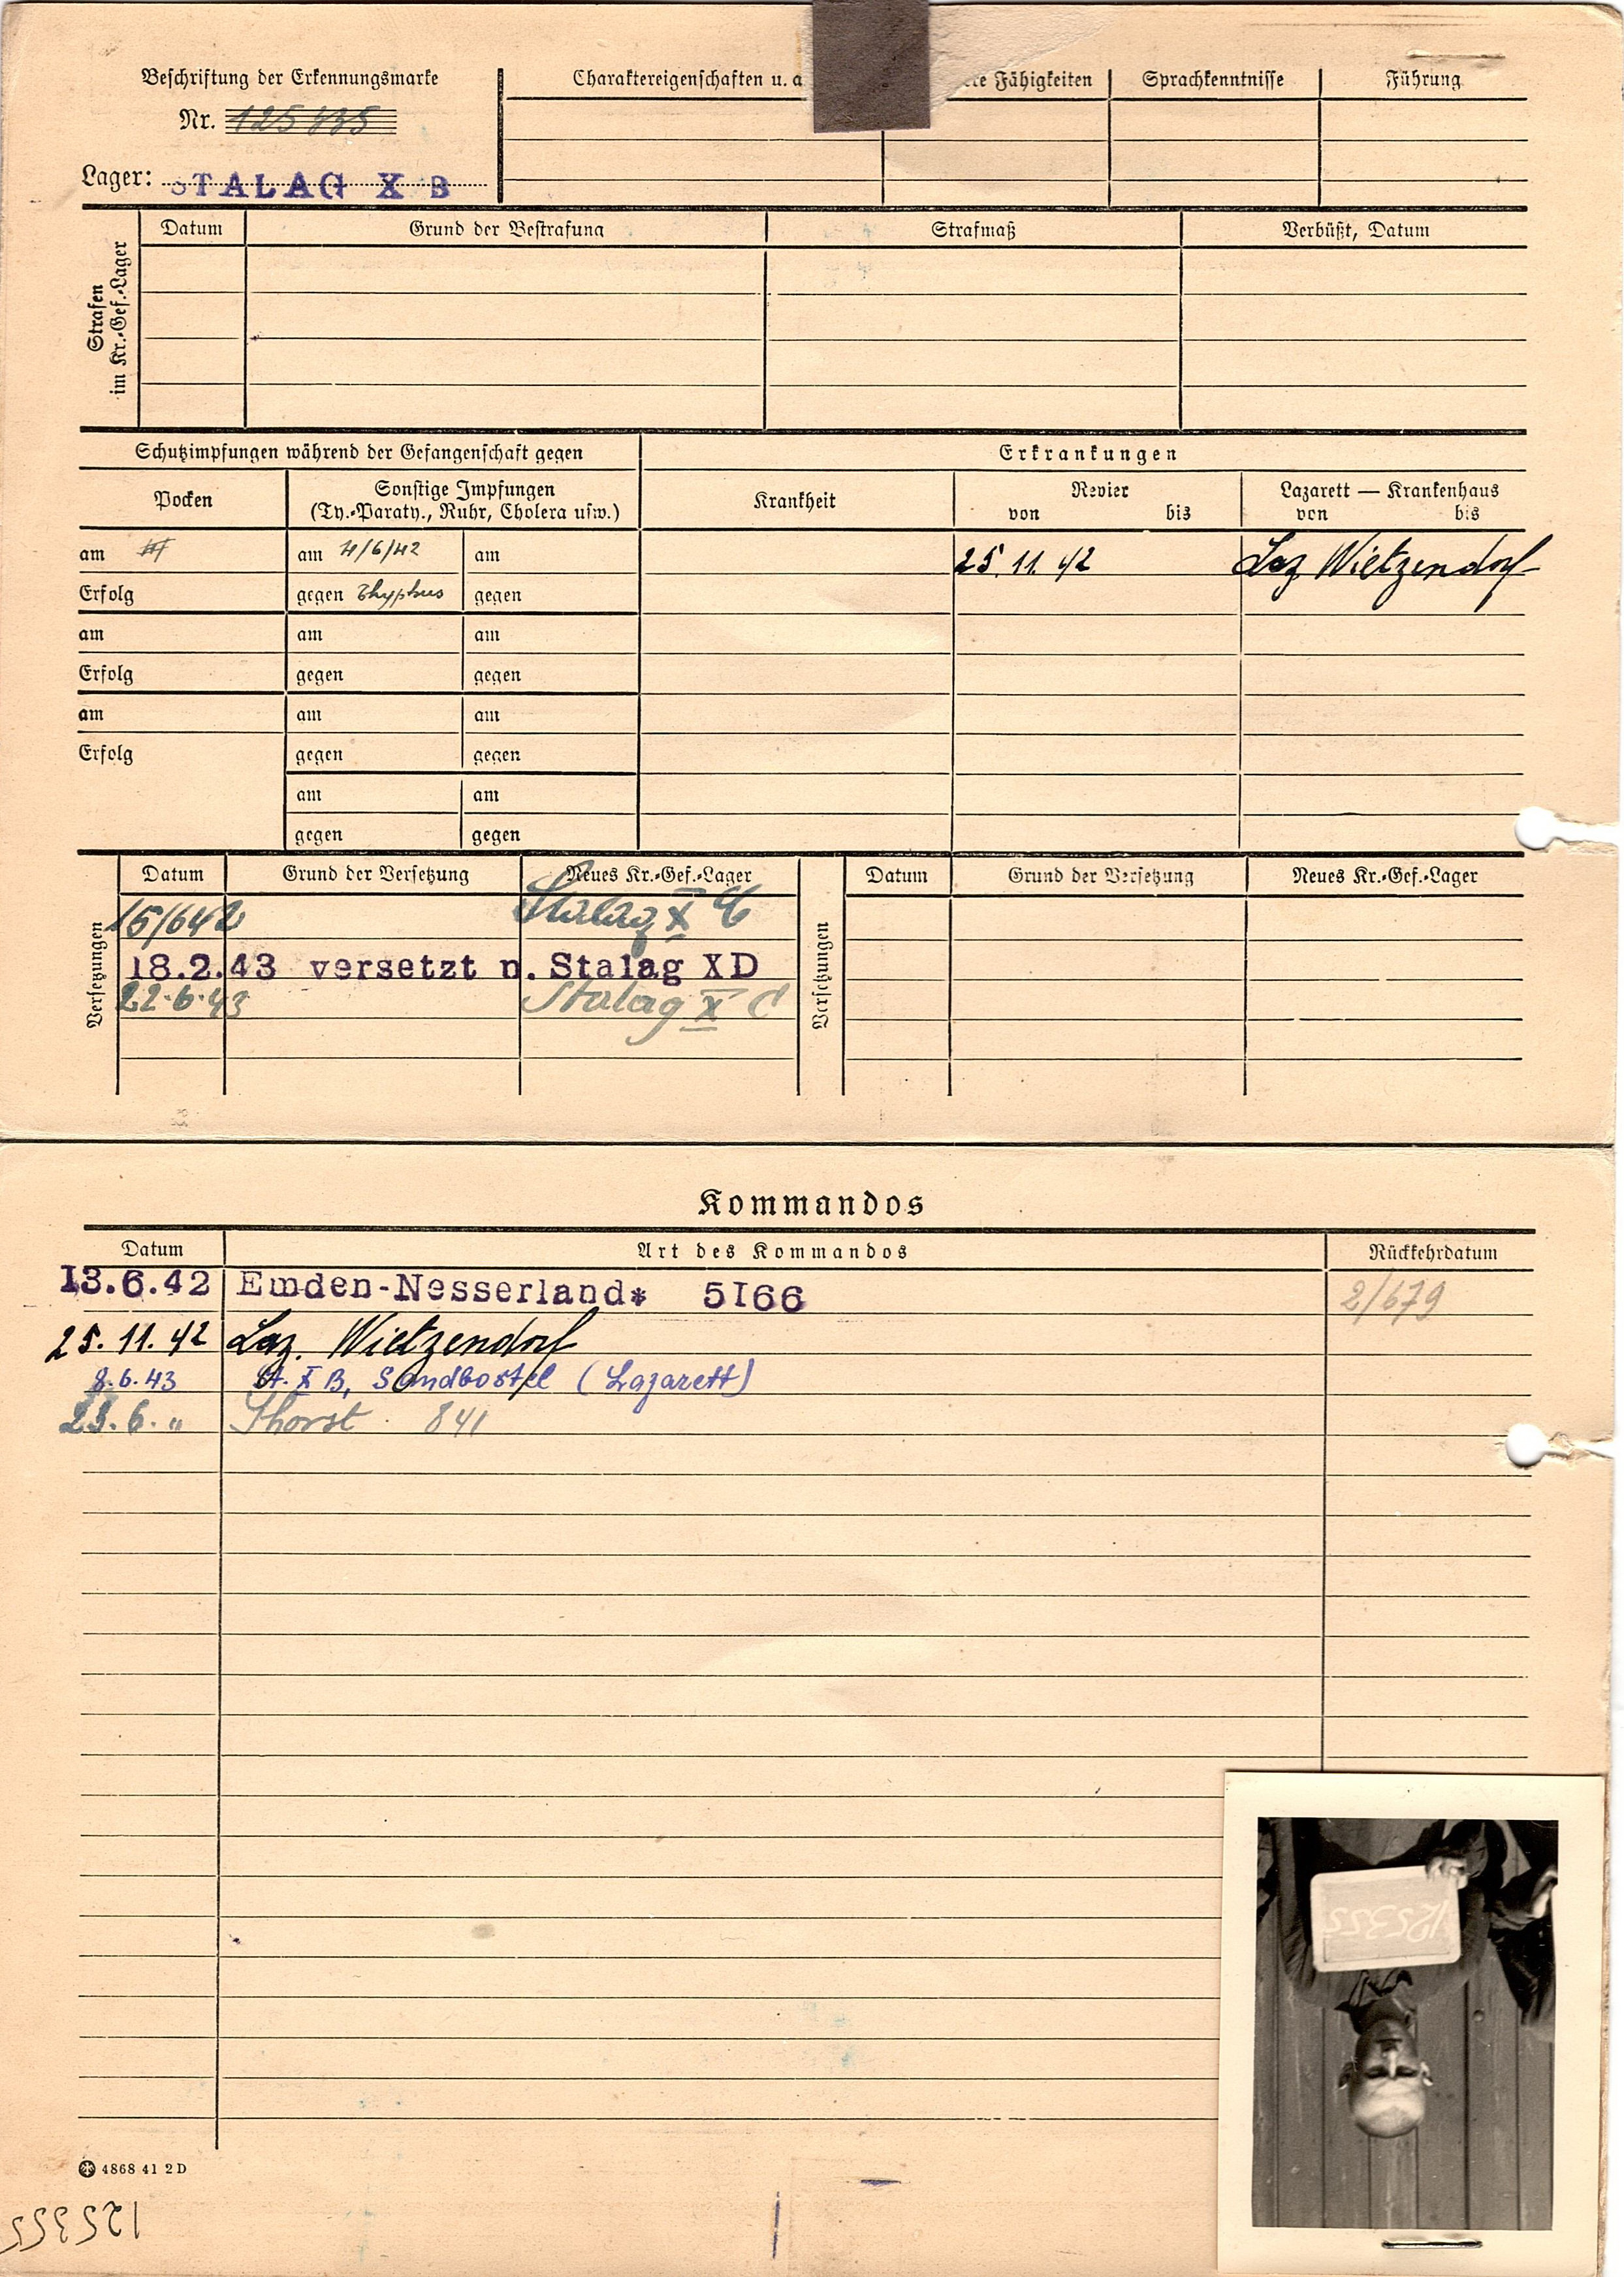 Beschriftung der Erkennungsmarke
Nr.
Lager: STALAG X B
Charaktereigenschaften u. a
Fähigkeiten
Sprachkenntnisse
Führung
Strafen
im Kr.-Gef.-Lager
Datum
Grund der Bestrafung
Strafmaß
Verbüßt, Datum
Schutzimpfungen während der Gefangenschaft gegen
Erkrankungen
Pocken
Sonstige Impfungen
(Ty.-Paraty., Ruhr, Cholera usw.)
Krankheit
Revier
von bis
Lazarett — Krankenhaus
von bis
am am 4/6/42 am 25.11.42 Laz Wietzendorf
Erfolg gegen Thyphus gegen
am am am
Erfolg gegen gegen
am am am
Erfolg gegen gegen
am am
gegen gegen
Versetzungen
Datum Grund der Versetzung Neues Kr.-Gef.-Lager
15/642 Stalag X C
18.2.43 versetzt n. Stalag XD
22.6.43 Stalag X C
Versetzungen
Datum Grund der Versetzung Neues Kr.-Gef.-Lager
Kommandos
Datum Art des Kommandos Rückkehrdatum
I3.6.42 Emden-Nesserland* 5I66 2/679
25.11.42 Laz. Wietzendorf
8.6.43 St. X B, Sandbostel (Lazarett)
23.6. " Thorst 841
125355
4868 41 2 D
125355